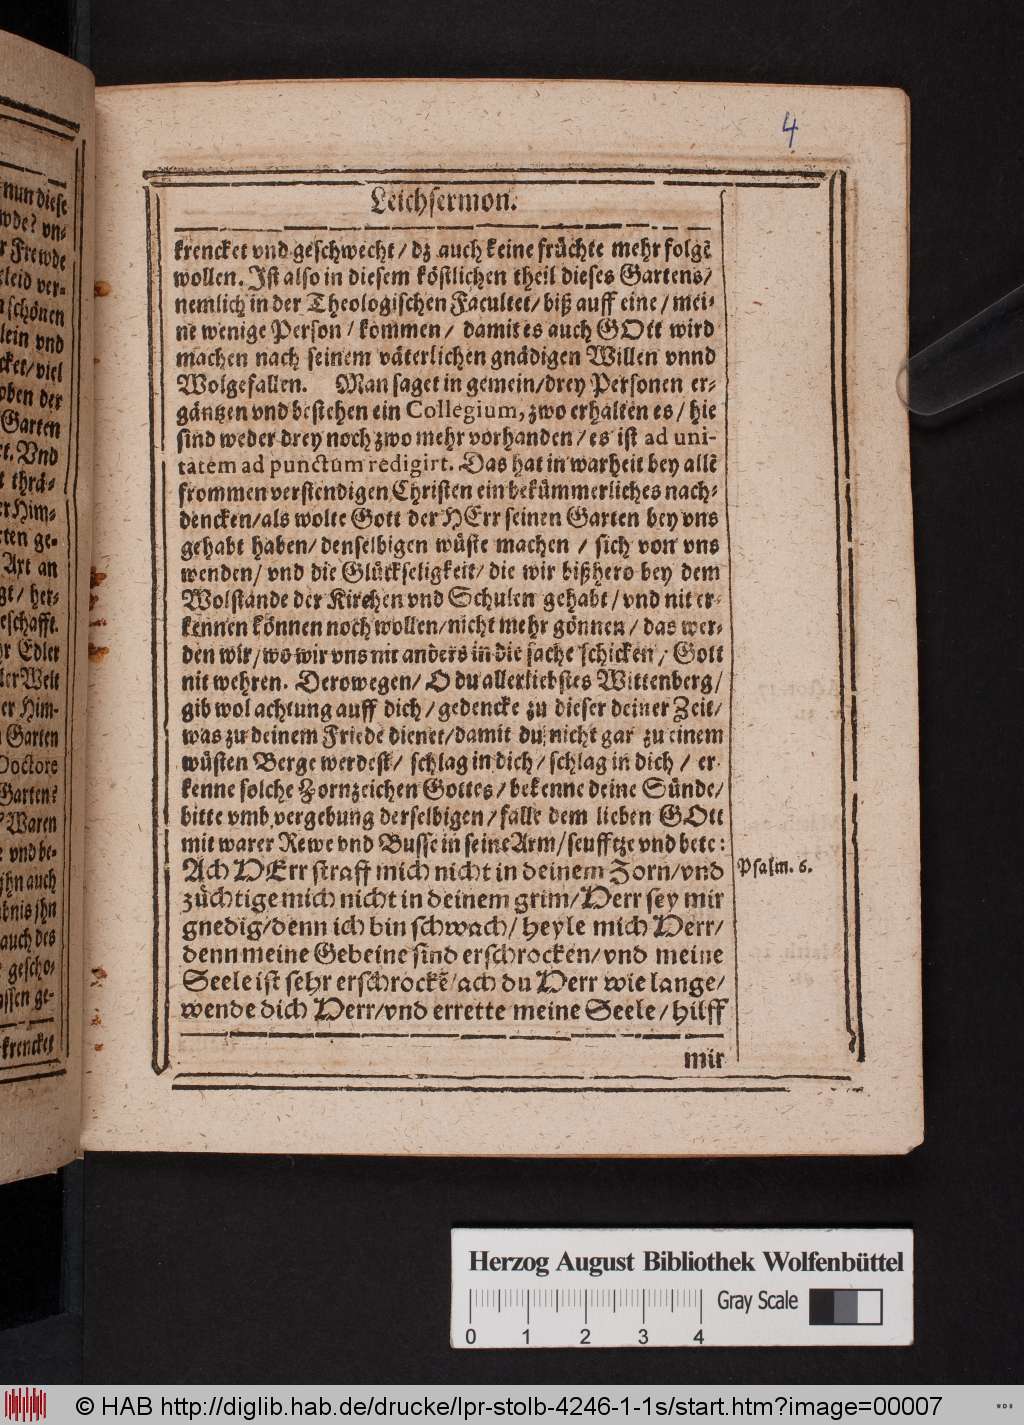 4
Leichsermon.
krencket vnd geschwecht / dz auch keine früchte mehr folgẽ
wollen. Ist also in diesem köstlichen theil dieses Gartens /
nemlich in der Theologischen Facultet / biß auff eine / mei-
ne wenige Person / kommen / damit es auch GOtt wird
machen nach seinem väterlichen gnädigen Willen vnnd
Wolgefallen. Man saget in gemein / drey Personen er-
gäntzen vnd bestehen ein Collegium, zwo erhalten es / hie
sind weder drey noch zwo mehr vorhanden / es ist ad uni-
tatem ad punctum redigirt. Das hat in warheit bey allẽ
frommen verstendigen Christen ein bekümmerliches nach-
dencken / als wolte Gott der HErr seinen Garten bey vns
gehabt haben / denselbigen wüste machen / sich von vns
wenden / vnd die Glückseligkeit / die wir bißhero bey dem
Wolstande der Kirchen vnd Schulen gehabt / vnd nit er-
kennen können noch wollen / nicht mehr gönnen / das wer-
den wir / wo wir vns nit anders in die sache schicken / Gott
nit wehren. Derowegen / O du allerliebstes Wittenberg /
gib wol achtung auff dich / gedencke zu dieser deiner Zeit /
was zu deinem Friede dienet / damit du nicht gar zu einem
wüsten Berge werdest / schlag in dich / schlag in dich / er-
kenne solche Zornzeichen Gottes / bekenne deine Sünde /
bitte vmb vergebung derselbigen / falle dem lieben GOtt
mit warer Rewe vnd Busse in seine Arm / seufftze vnd bete :
Ach HErr straff mich nicht in deinem Zorn / vnd
züchtige mich nicht in deinem grim / Herr sey mir
gnedig / denn ich bin schwach / heyle mich Herr /
denn meine Gebeine sind erschrocken / vnd meine
Seele ist sehr erschrockẽ / ach du Herr wie lange /
wende dich Herr / vnd errette meine Seele / hilff
mir
Psalm. 6.
nun diese
wde? vn-
Frewde
leid ver-
schönen
lein vnd
cket / viel
oben der
Garten
Vnd
thrä-
Him-
ge-
Art an
her-
Edler
Welt
Him-
Garten
Doctore
Garten?
Waren
vnd be-
jhn auch
jhn
auch des
gescho-
ge-
krencket
Herzog August Bibliothek Wolfenbüttel
0 1 2 3 4
Gray Scale
© HAB http://diglib.hab.de/drucke/lpr-stolb-4246-1-1s/start.htm?image=00007